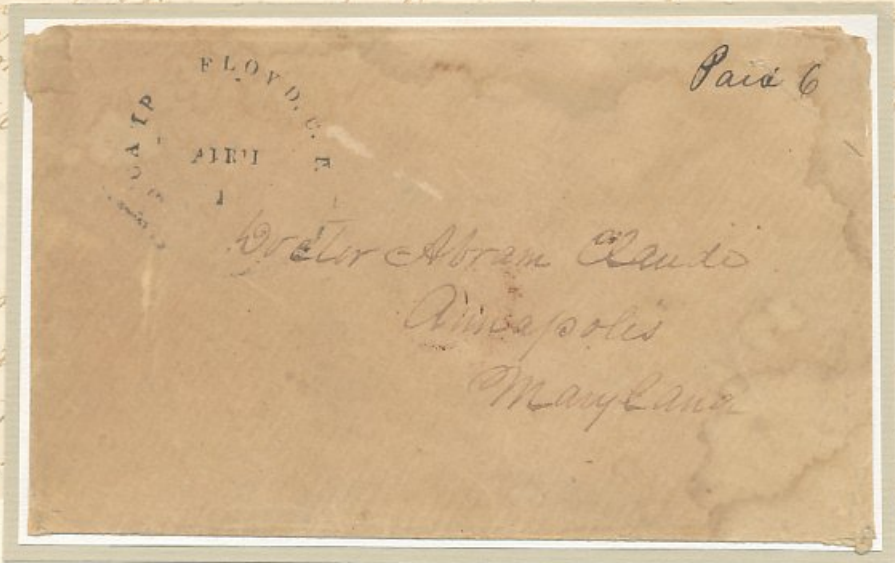 FLOYD. C. H.
APRIL
1
Paid 6
Doctor Abram Claude
Annapolis
Maryland